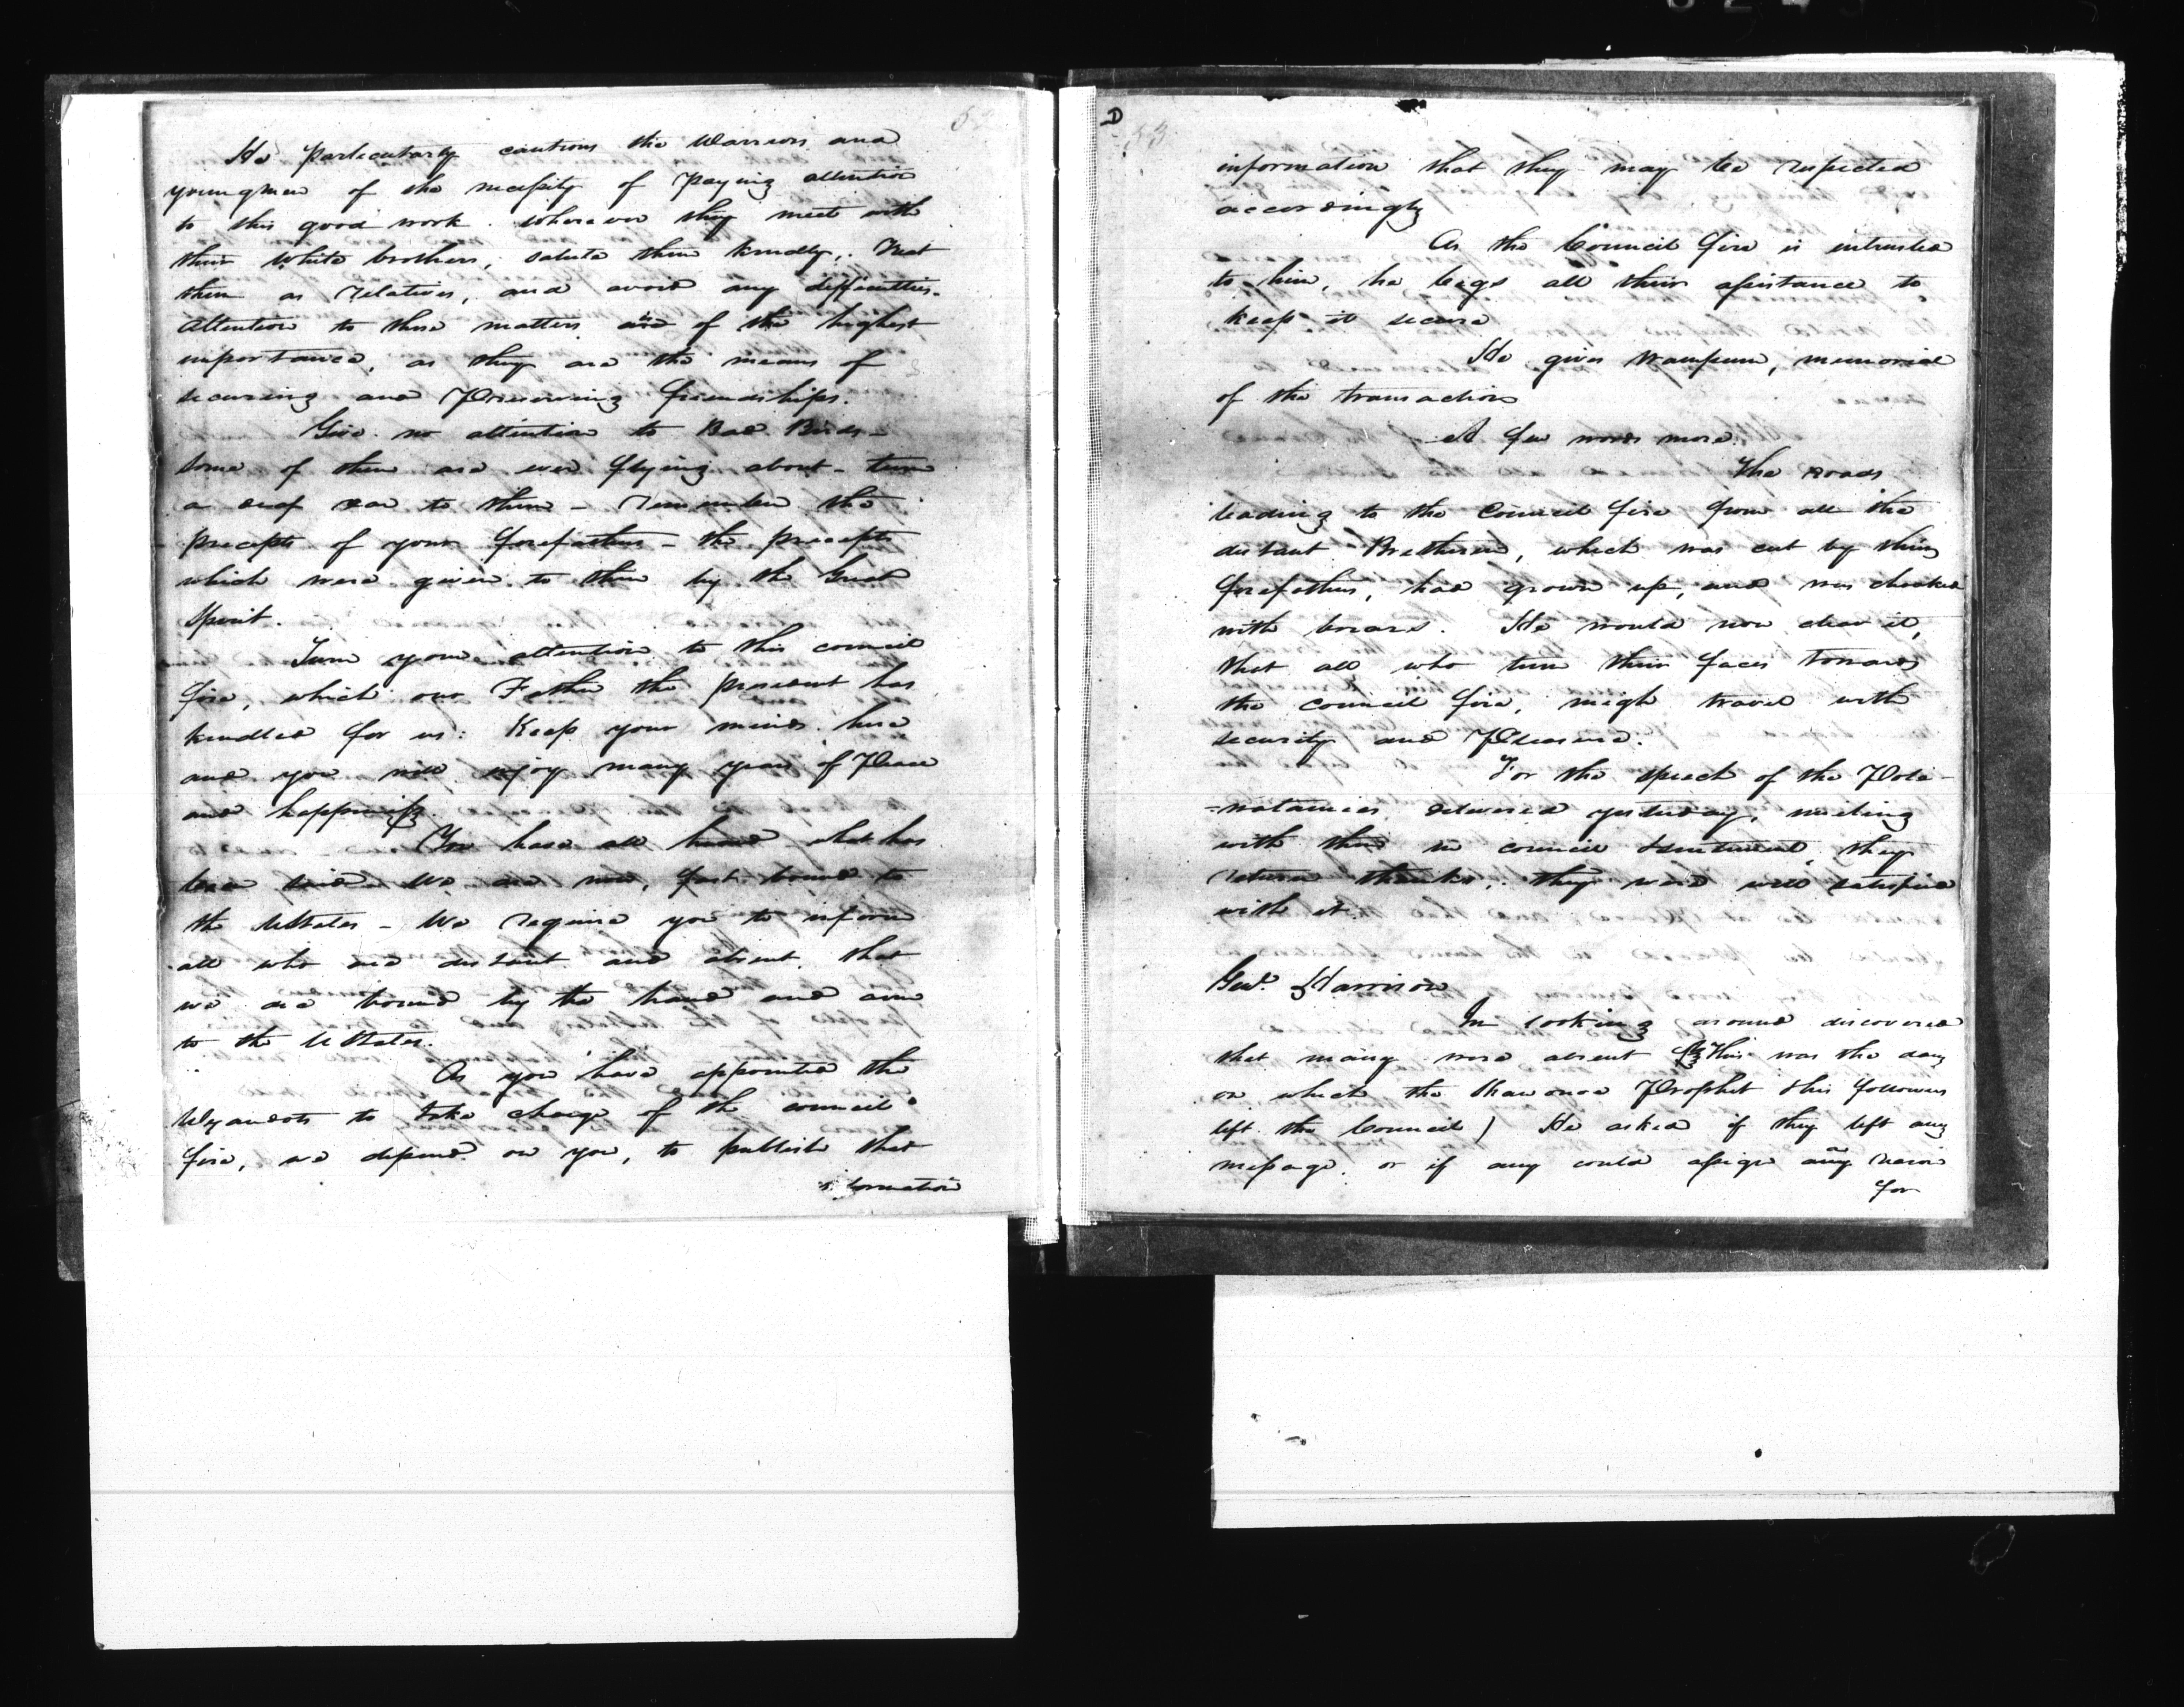 He particularly cautions the Warriors and
youngmen of the necessity of Paying attention
to this good work. Wherever they meet with
their White brothers, salute them kindly,. Treat
them as relatives, and avoid any difficulties.
Attention to these matters are of the highest
importance, as they are the means of
securing and Preserving friendships.
Give no attention to Bad Birds -
Some of them are ever flying about - turn
a deaf ear to them - remember the
precepts of your forefathers - the precepts
which were given to them by the Great
Spirit.
Turn your attention to this council
fire, which our Father the president has
kindled for us: Keep your minds here
and you will enjoy many years of Peace
and happiness.
You have all heard what has
been said We are now, fast bound to
the UStates - We require you to inform
all who are distant and absent, that
we are bound by the hand and arm
to the UStates.
As you have appointed the
Wyandots to take charge of the council
fire, we depend on you, to publish that
information
53
D
information that they may be respected
accordingly
As the Council fire is intrusted
to him, he begs all their assistance to
keep it secure
He gives Wampum, memorial
of the transaction
A few words more.
The roads
leading to the Council fire from all the
distant Bretheren, which was cut by their
forefathers, had grown up, and was choaked
with briars. He would now clear it,
that all who turn their faces towards
the council fire, migh travel with
security and Pleasure.
For the speech of the Pota-
=watamies delivered yesterday, uniting
with them in council & sentiment they
return thanks,. they were well satisfied
with it.
Genl. Harrison
In looking around discovered
that many were absent (This was the day
on which the Shawonoe Prophet & his followers
left the Council) He asked if they left any
message, or if any could assign any reason
for